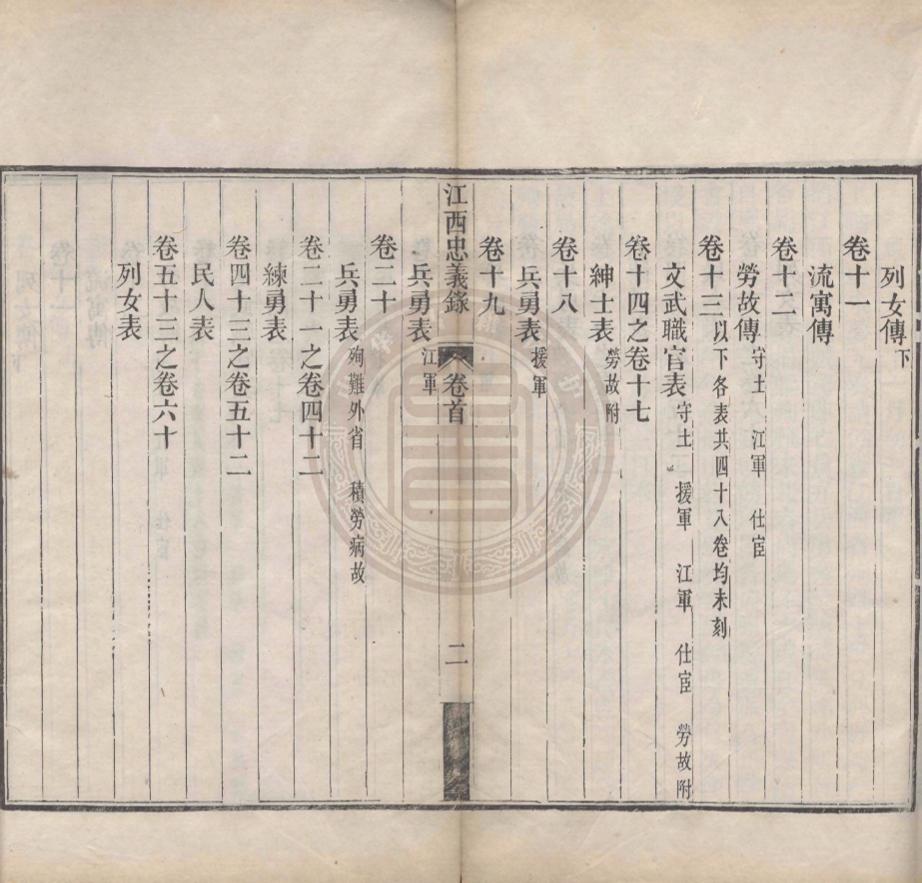 列女傳下
卷十一
流寓傳
卷十二
勞故傳 守土 江軍 仕宦
卷十三 以下各表共四十八卷均未刻
文武職官表 守土 援軍 江軍 仕宦 勞故附
卷十四之卷十七
紳士表 勞故附
卷十八
兵勇表 援軍
卷十九
江西忠義錄 卷首 二
兵勇表 江軍
卷二十
兵勇表 殉難外省 積勞病故
卷二十一之卷四十二
練勇表
卷四十三之卷五十二
民人表
卷五十三之卷六十
列女表